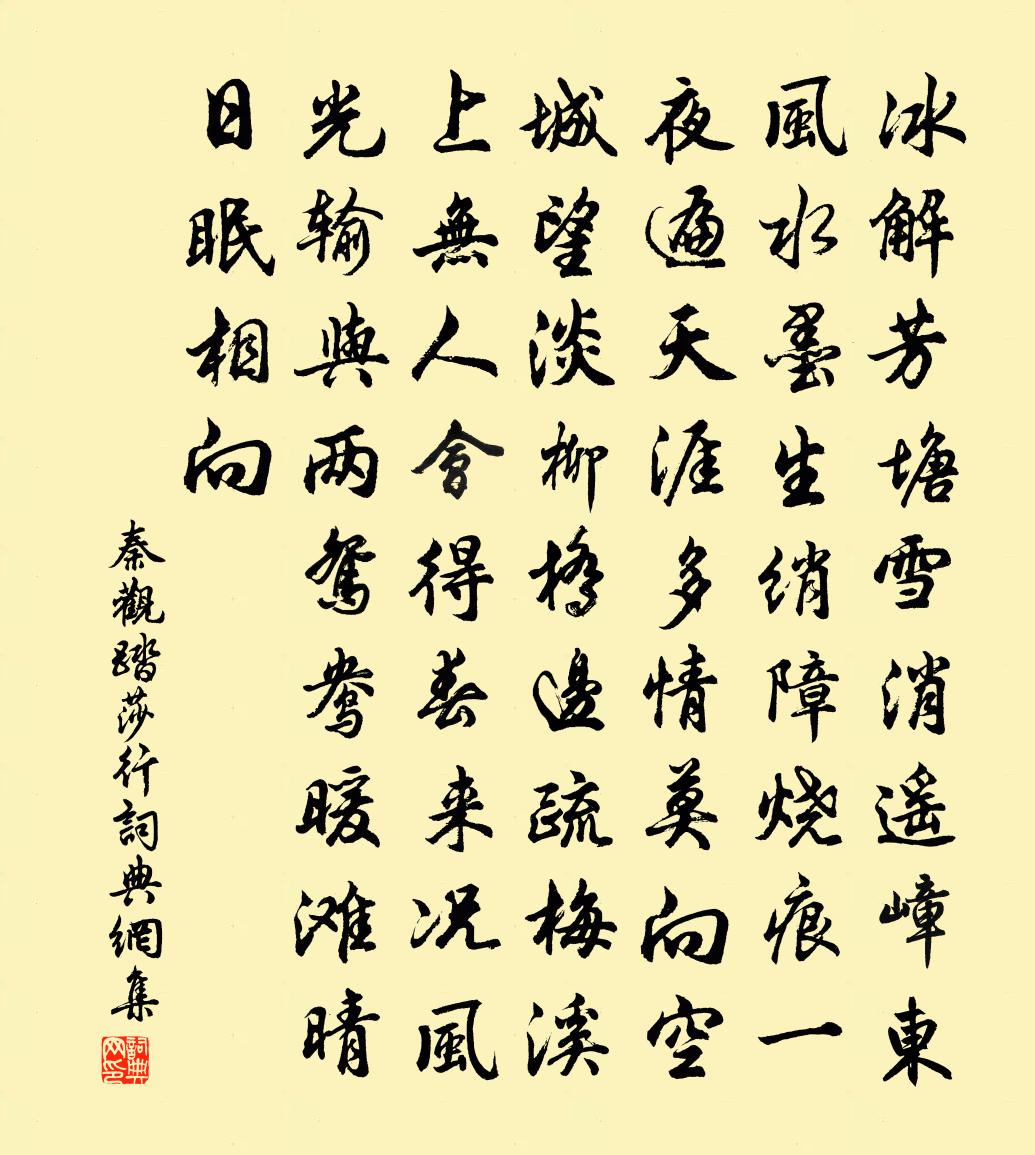 冰解芳塘雪消遥嶂東
風水墨生绡障烧痕一
夜遍天涯多情莫向空
城望淡柳橋邊疏梅溪
上無人會得春来况風
光输與两鸳鸯暖滩晴
日眠相向
秦觀踏莎行詞典網集
詞典网印